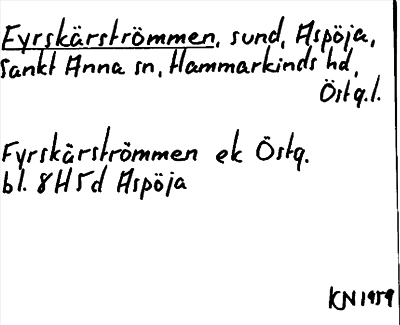 Fyrskärströmmen, sund, Aspöja,
Sankt Anna sn, Hammarkinds hd,
Östg.l.
Fyrskärströmmen ek Östg.
bl. 8H5d Aspöja
KN 1959